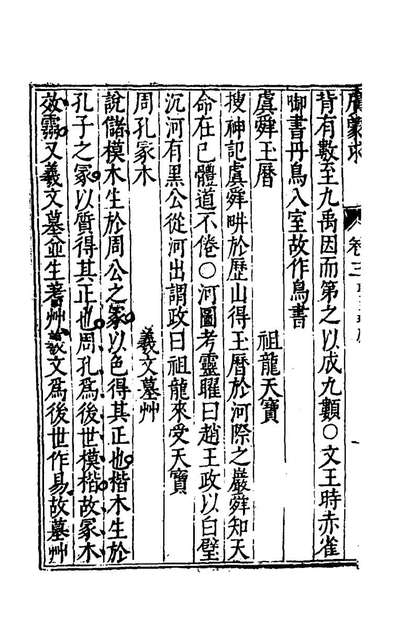 廣蒙求 卷三
背有數至九禹因而第之以成九類○文王時赤雀
啣書丹鳥入室故作鳥書
虞舜玉曆 祖龍天寶
搜神記虞舜畊於歷山得玉曆於河際之巖舜知天
命在己體道不倦○河圖考靈曜曰趙王政以白璧
沉河有黑公從河出謂政曰祖龍來受天寶
周孔冢木 羲文墓艸
說儲模木生於周公之冢以色得其正也楷木生於
孔子之冢以質得其正也周孔爲後世模楷故冢木
效靈又羲文墓並生蓍艸羲文爲後世作易故墓艸